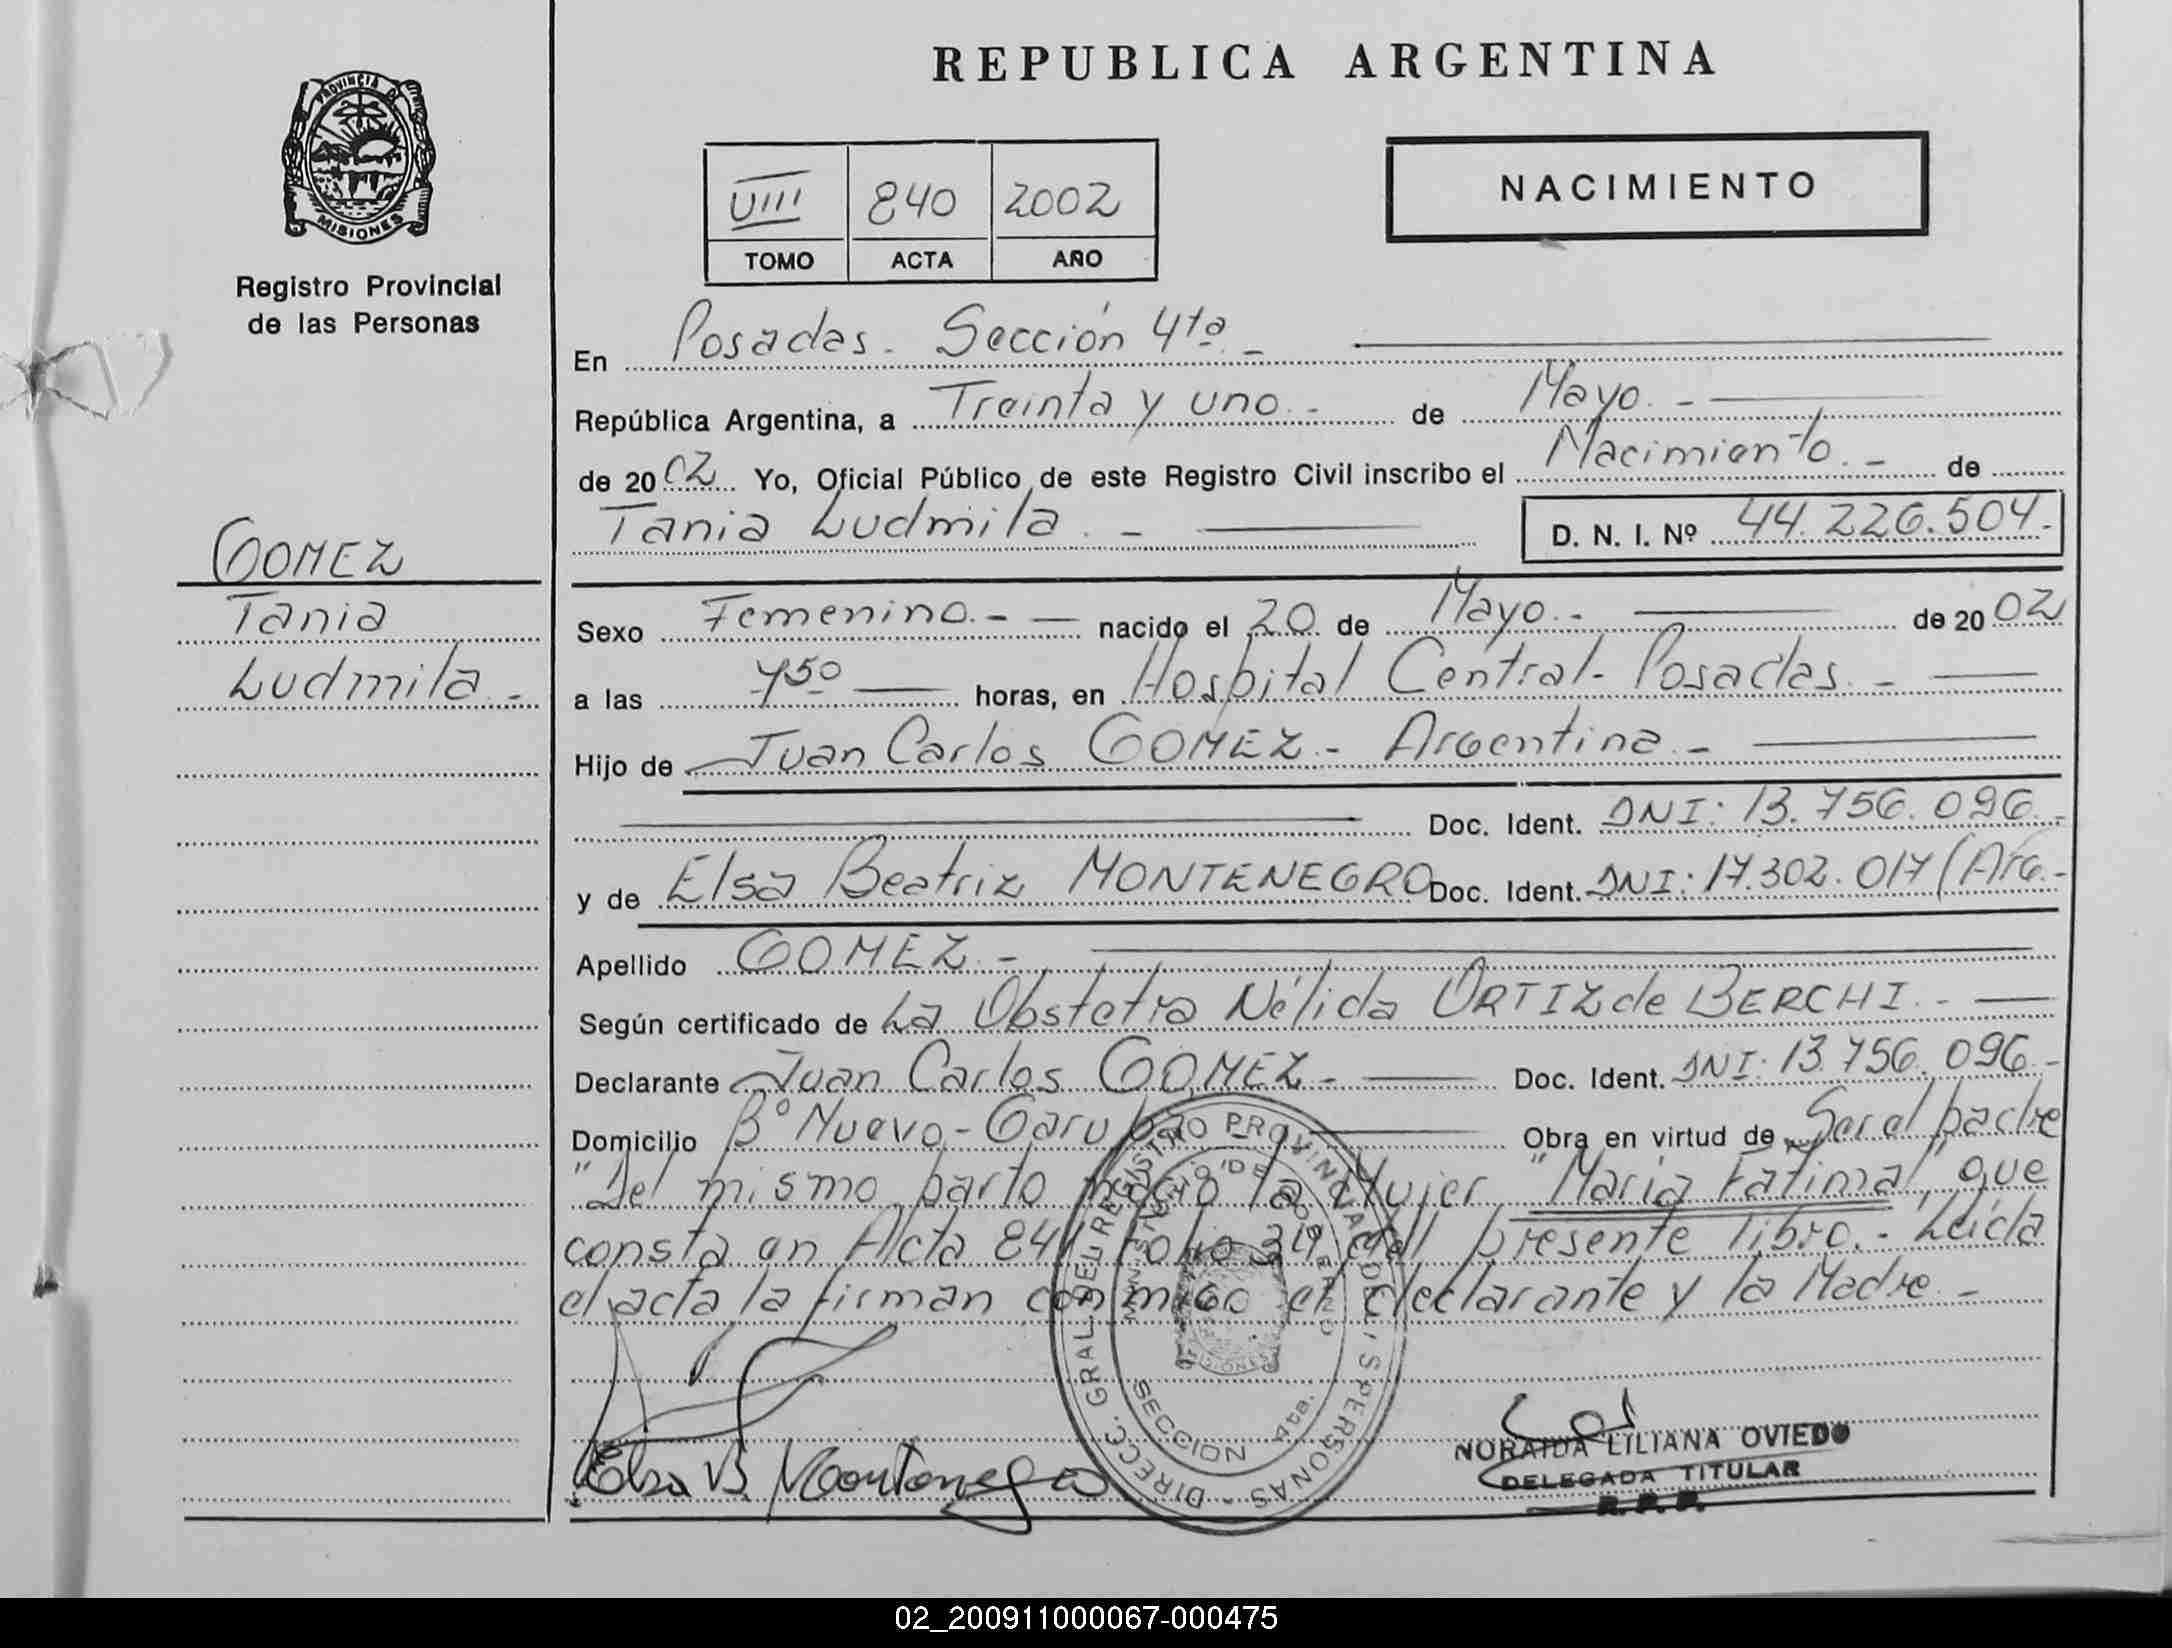 REPUBLICA ARGENTINA
PROVINCIA DE
MISIONES
Registro Provincial
de las Personas
VIII 840 2002
TOMO ACTA AÑO
NACIMIENTO
En Posadas. Sección 4ta. -
República Argentina, a Treinta y uno. - de Mayo. -
de 2002 Yo, Oficial Público de este Registro Civil inscribo el Nacimiento. - de
Tania Ludmila. - D. N. I. Nº 44.226.504.-
GOMEZ
Tania
Ludmila. -
Sexo Femenino. - nacido el 20 de Mayo. - de 2002
a las 750 horas, en Hospital Central - Posadas. -
Hijo de Juan Carlos GOMEZ. - Argentina. -
Doc. Ident. DNI: 13.756.096.-
y de Elsa Beatriz MONTENEGRO Doc. Ident. DNI: 17.302.017 (Arg.-
Apellido GOMEZ. -
Según certificado de La Obstetra Nélida ORTIZ de BERCHI. -
Declarante Juan Carlos GOMEZ. - Doc. Ident. DNI: 13.756.096.-
Domicilio Bº Nuevo - Garupá Obra en virtud de Ser el padre
"Del mismo parto nació la Mujer "Maria Fatima", que
consta en Acta 841 Folio 34 del presente libro. - Leída
el acta la firman conmigo el declarante y la Madre. -
DIRECC. GRAL. DEL REGISTRO PROVINCIAL DE L'S PERSONAS -
MINISTERIO DE GOBIERNO
MISIONES
SECCION 4ta.
Elsa B. Montenegro
NORAIDA LILIANA OVIEDO
DELEGADA TITULAR
R.P.P.
02_200911000067-000475